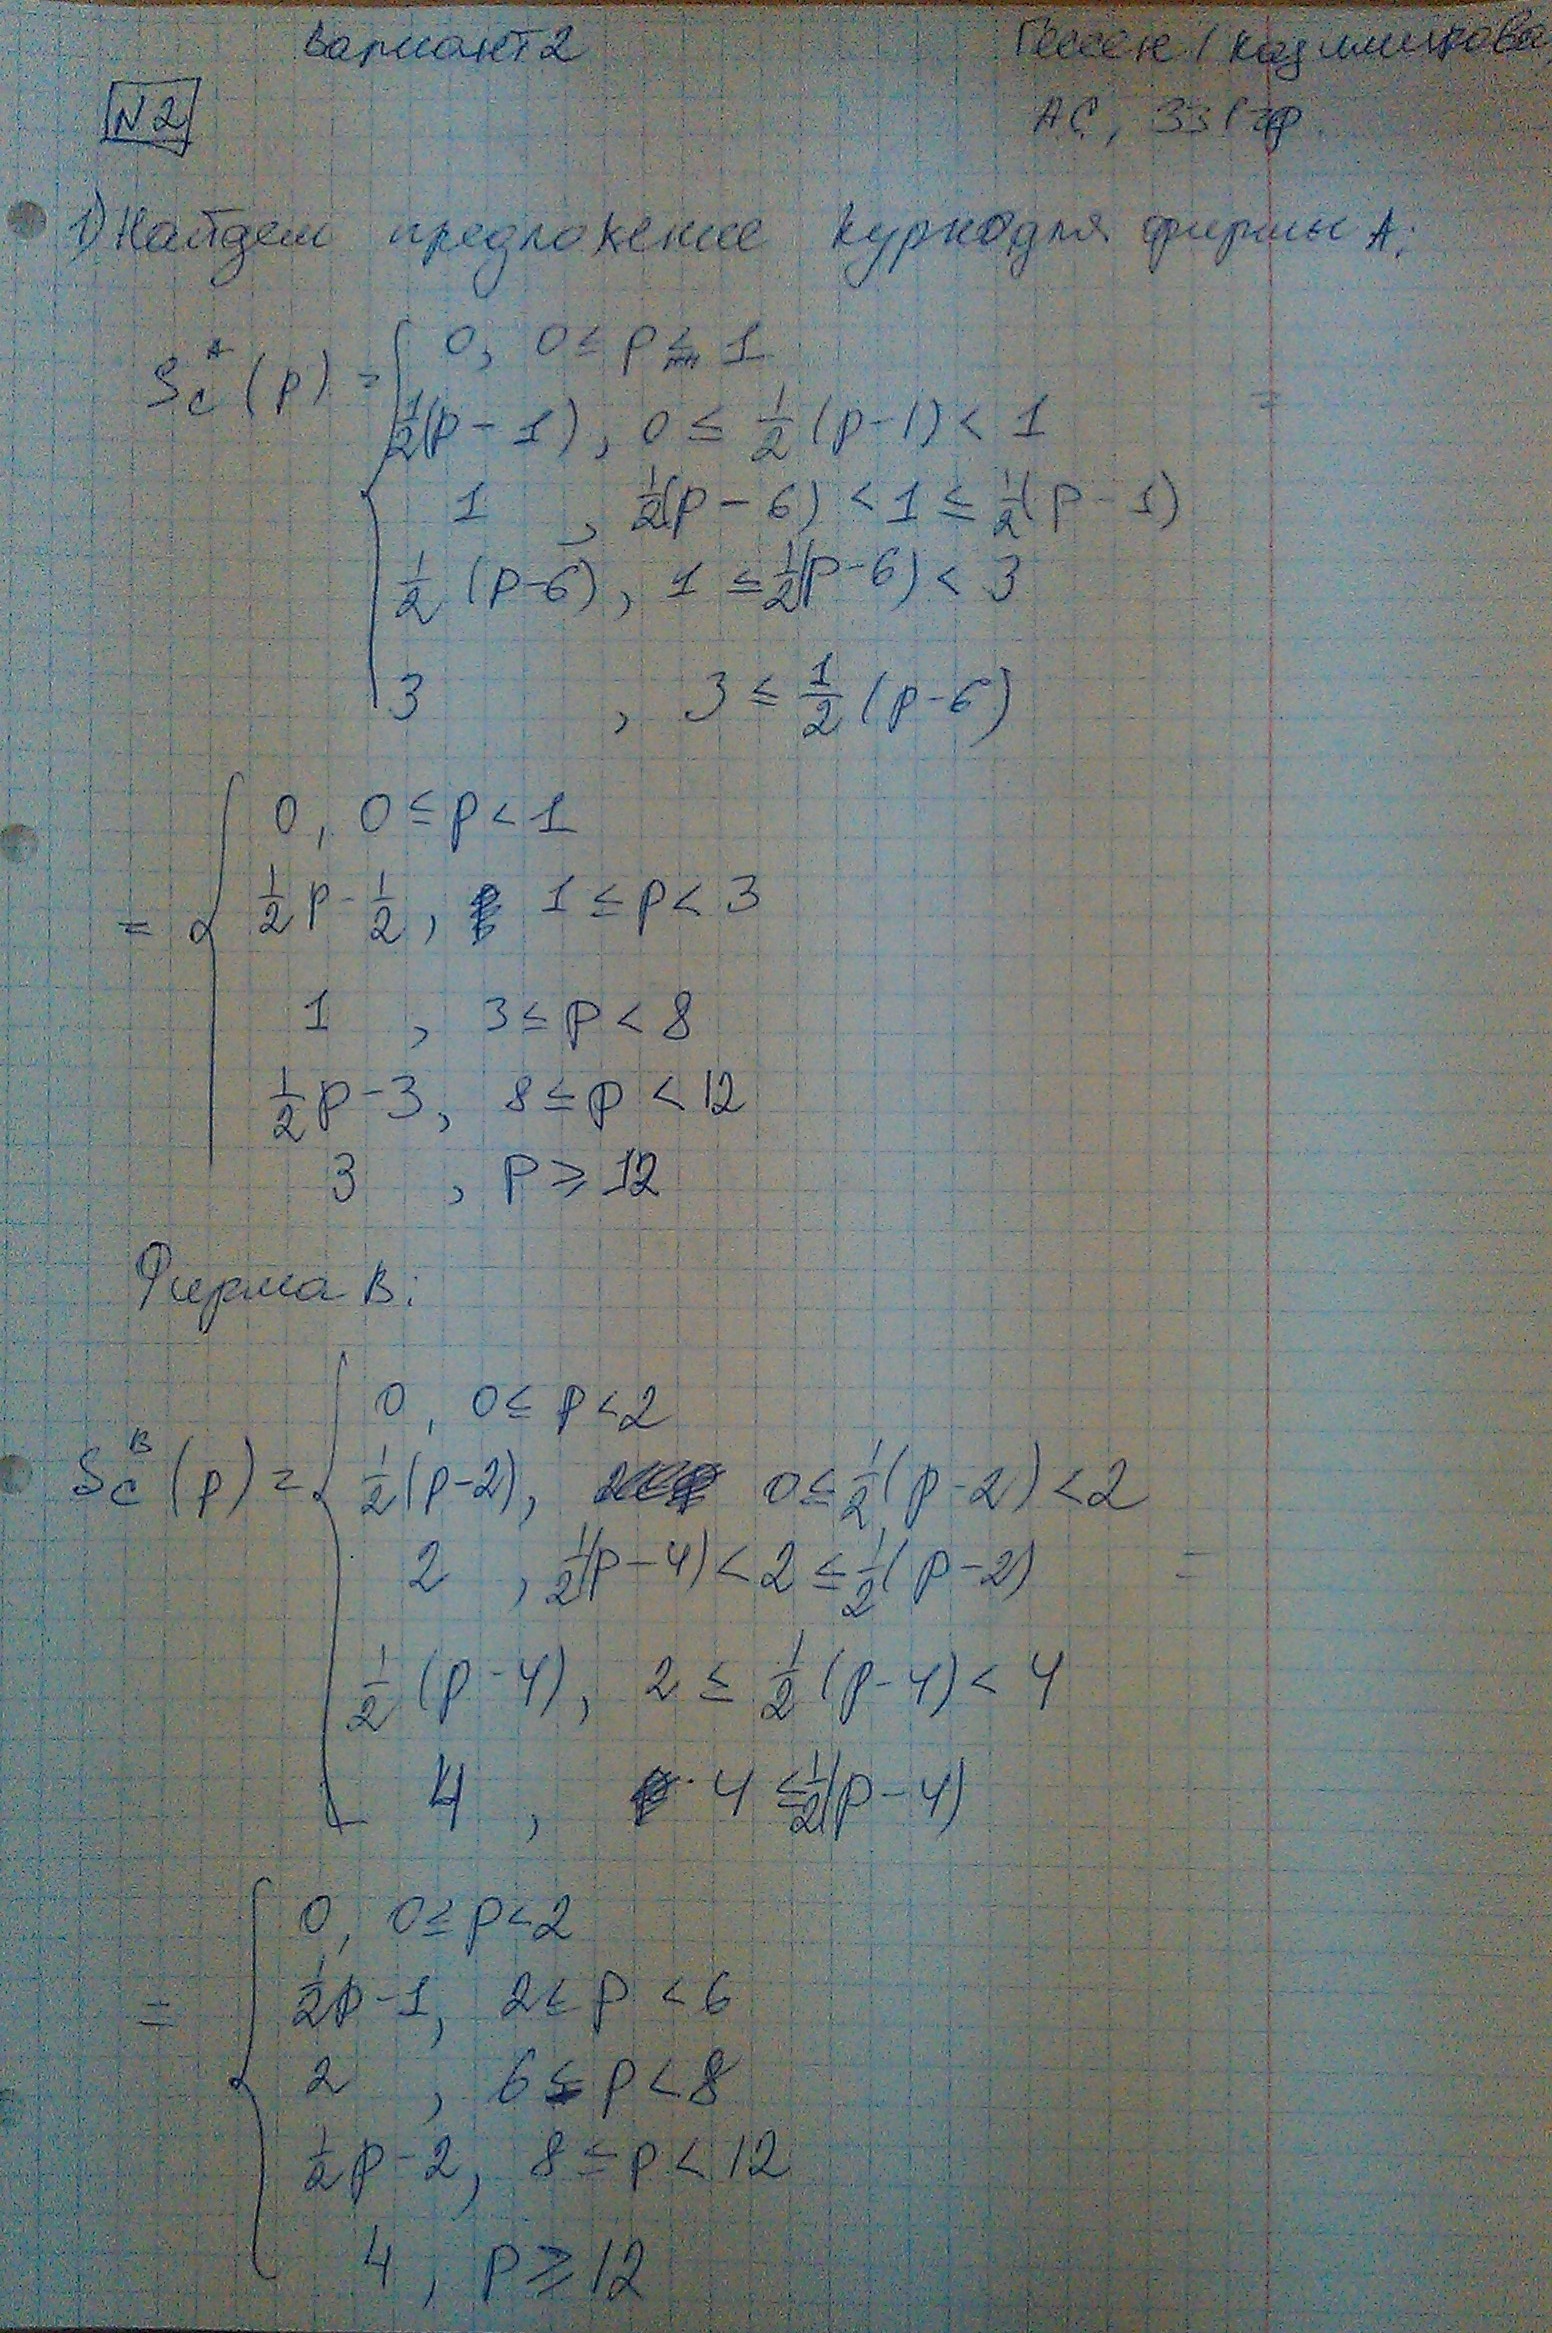 Вариант 2
Гессен / Казимирова,
№2
АС, 331 гр.
1) Найдем предложение Курно для фирмы А:
S_C^A (p) = { 0, 0 ≤ p ≤ 1
½(p - 1), 0 ≤ ½(p-1) < 1 =
1 , ½(p - 6) < 1 ≤ ½(p - 1)
½(p-6), 1 ≤ ½(p-6) < 3
3 , 3 ≤ ½(p-6)
= { 0, 0 ≤ p < 1
½p - ½, 1 ≤ p < 3
1 , 3 ≤ p < 8
½p - 3, 8 ≤ p < 12
3 , p ≥ 12
Фирма В:
S_C^B (p) = { 0, 0 ≤ p < 2
½(p-2), 0 ≤ ½(p-2) < 2
2 , ½(p-4) < 2 ≤ ½(p-2) =
½(p-4), 2 ≤ ½(p-4) < 4
4 , 4 ≤ ½(p-4)
= { 0, 0 ≤ p < 2
½p - 1, 2 ≤ p < 6
2 , 6 ≤ p < 8
½p - 2, 8 ≤ p < 12
4, p ≥ 12